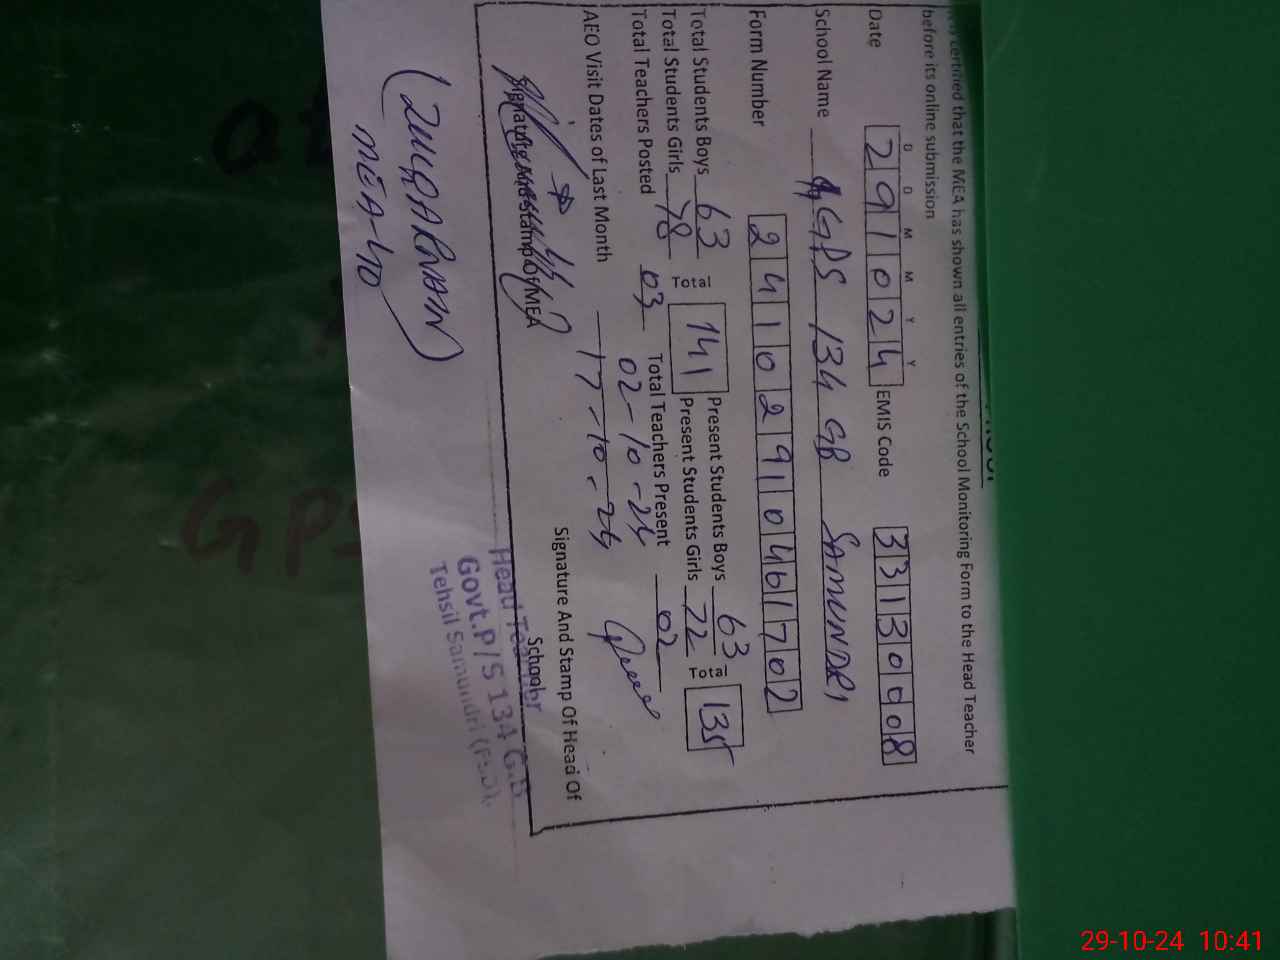 certified that the MEA has shown all entries of the School Monitoring Form to the Head Teacher
before its online submission
D D M M Y Y
Date 291024 EMIS Code 33130008
School Name GPS 134 GB SAMUNDRI
Form Number 24102910461702
Total Students Boys 63 Total 141 Present Students Boys 63 Total 135
Total Students Girls 78 Present Students Girls 72
Total Teachers Posted 03 Total Teachers Present 02
02-10-24
AEO Visit Dates of Last Month 17-10-24
Signature And Stamp Of Head Of
School
Signature And Stamp Of MEA
Head Teacher
Govt.P/S 134 G.B
Tehsil Samundri (FSD).
MEA-40
GPS
29-10-24 10:41